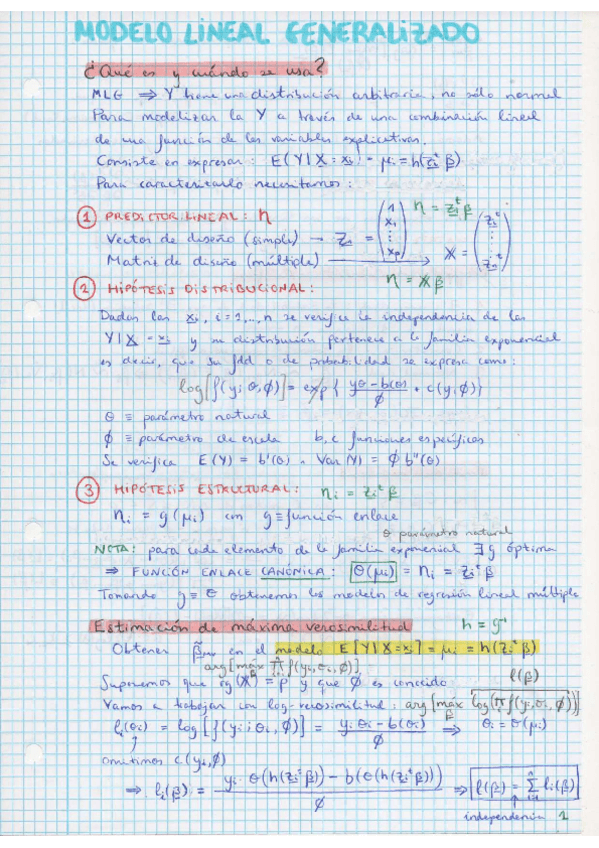 MODELO LINEAL GENERALIZADO
¿Qué es y cuándo se usa?
MLG ⇒ Y tiene una distribución arbitraria, no sólo normal
Para modelizar la Y a través de una combinación lineal
de una función de las variables explicativas.
Consiste en expresar: E(Y|X = xi) = μi = h(zi^t β)
Para caracterizarlo necesitamos:
① PREDICTOR LINEAL: η
Vector de diseño (simple) → zi = (1 x1 ⋮ xp) η = zi^t β
Matriz de diseño (múltiple) → X = (z1^t ⋮ zn^t)
η = Xβ
② HIPÓTESIS DISTRIBUCIONAL:
Dadas las xi, i = 1,...,n se verifica la independencia de las
Y|X = xi y su distribución pertenece a la familia exponencial
es decir, que su fdd o de probabilidad se expresa como:
log[f(y; θ, ϕ)] = exp{ (yθ - b(θ))/ϕ + c(y, ϕ)}
θ ≡ parámetro natural
ϕ ≡ parámetro de escala b, c funciones específicas
Se verifica E(Y) = b'(θ) Var(Y) = ϕ b''(θ)
③ HIPÓTESIS ESTRUCTURAL: ηi = zi^t β
ηi = g(μi) con g ≡ función enlace
θ parámetro natural
NOTA: para cada elemento de la familia exponencial ∃ g óptima
⇒ FUNCIÓN ENLACE CANÓNICA: θ(μi) = ηi = zi^t β
Tomando g ≡ θ obtenemos los modelos de regresión lineal múltiple
Estimación de máxima verosimilitud h = g^-1
Obtener β̂ en el modelo E[Y|X = xi] = μi = h(zi^t β)
arg[máx ∏ f(yi, θi, ϕ)]
Suponemos que rg(X) = p y que ϕ es conocido l(β)
Vamos a trabajar con log-verosimilitud: arg[máx β log(∏ f(yi, θi, ϕ))]
li(θi) = log[f(yi; θi, ϕ)] = (yi θi - b(θi))/ϕ ⇒ θi = θ(μi)
omitimos c(yi, ϕ)
⇒ li(β) = (yi · θ(h(zi^t β)) - b(θ(h(zi^t β))))/ϕ ⇒ l(β) = Σ i=1 n li(β)
independencia 1